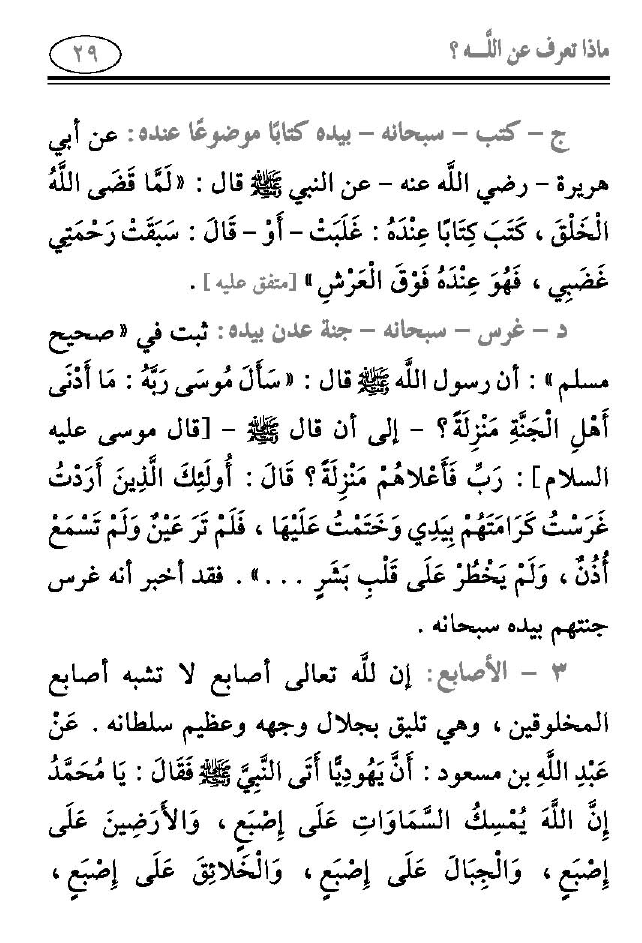 ماذا تعرف عن اللَّـه ؟ ٢٩
ج – كتب – سبحانه – بيده كتابًا موضوعًا عنده : عن أبي
هريرة – رضي اللَّه عنه – عن النبي ﷺ قال : « لَمَّا قَضَى اللَّهُ
الْخَلْقَ ، كَتَبَ كِتَابًا عِنْدَهُ : غَلَبَتْ – أَوْ – قَالَ : سَبَقَتْ رَحْمَتِي
غَضَبِي ، فَهُوَ عِنْدَهُ فَوْقَ الْعَرْشِ » [متفق عليه] .
د – غرس – سبحانه – جنة عدن بيده : ثبت في « صحيح
مسلم » : أن رسول اللَّه ﷺ قال : « سَأَلَ مُوسَى رَبَّهُ : مَا أَدْنَى
أَهْلِ الْجَنَّةِ مَنْزِلَةً ؟ – إلى أن قال ﷺ – [قال موسى عليه
السلام] : رَبِّ فَأَعْلاهُمْ مَنْزِلَةً ؟ قَالَ : أُولَئِكَ الَّذِينَ أَرَدْتُ
غَرَسْتُ كَرَامَتَهُمْ بِيَدِي وَخَتَمْتُ عَلَيْهَا ، فَلَمْ تَرَ عَيْنٌ وَلَمْ تَسْمَعْ
أُذُنٌ ، وَلَمْ يَخْطُرْ عَلَى قَلْبِ بَشَرٍ ... » . فقد أخبر أنه غرس
جنتهم بيده سبحانه .
٣ – الأصابع : إن للَّه تعالى أصابع لا تشبه أصابع
المخلوقين ، وهي تليق بجلال وجهه وعظيم سلطانه . عَنْ
عَبْدِ اللَّهِ بن مسعود : أَنَّ يَهُودِيًّا أَتَى النَّبِيَّ ﷺ فَقَالَ : يَا مُحَمَّدُ
إِنَّ اللَّهَ يُمْسِكُ السَّمَاوَاتِ عَلَى إِصْبَعٍ ، وَالأَرَضِينَ عَلَى
إِصْبَعٍ ، وَالْجِبَالَ عَلَى إِصْبَعٍ ، وَالْخَلائِقَ عَلَى إِصْبَعٍ ،